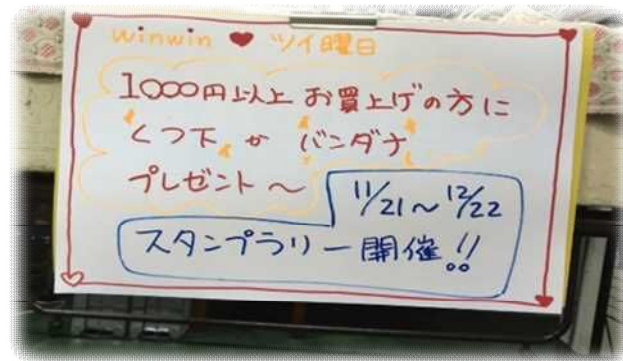 winwin ♥ ツイ曜日
1000円以上 お買上げの方に
くつ下 か バンダナ
プレゼント〜
11/21〜12/22
スタンプラリー開催!!